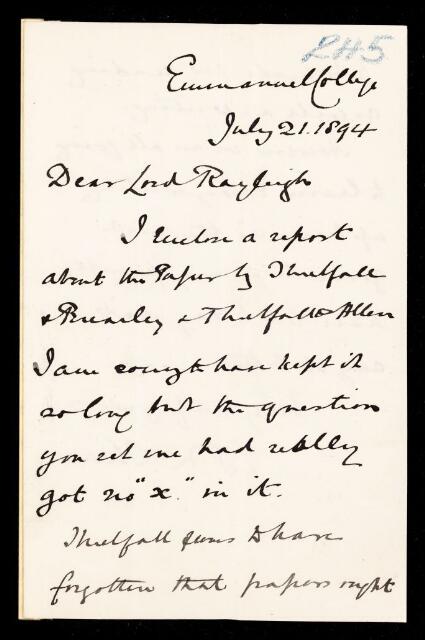 245
Emmanuel College
July 21. 1894
Dear Lord Rayleigh
I enclose a report
about the Paper by Threlfall
& Brearley & Threlfall & Allen
I am sorry to have kept it
so long but the question
you set me had really
got no "x" in it.
Threlfall seems to have
forgotten that papers ought